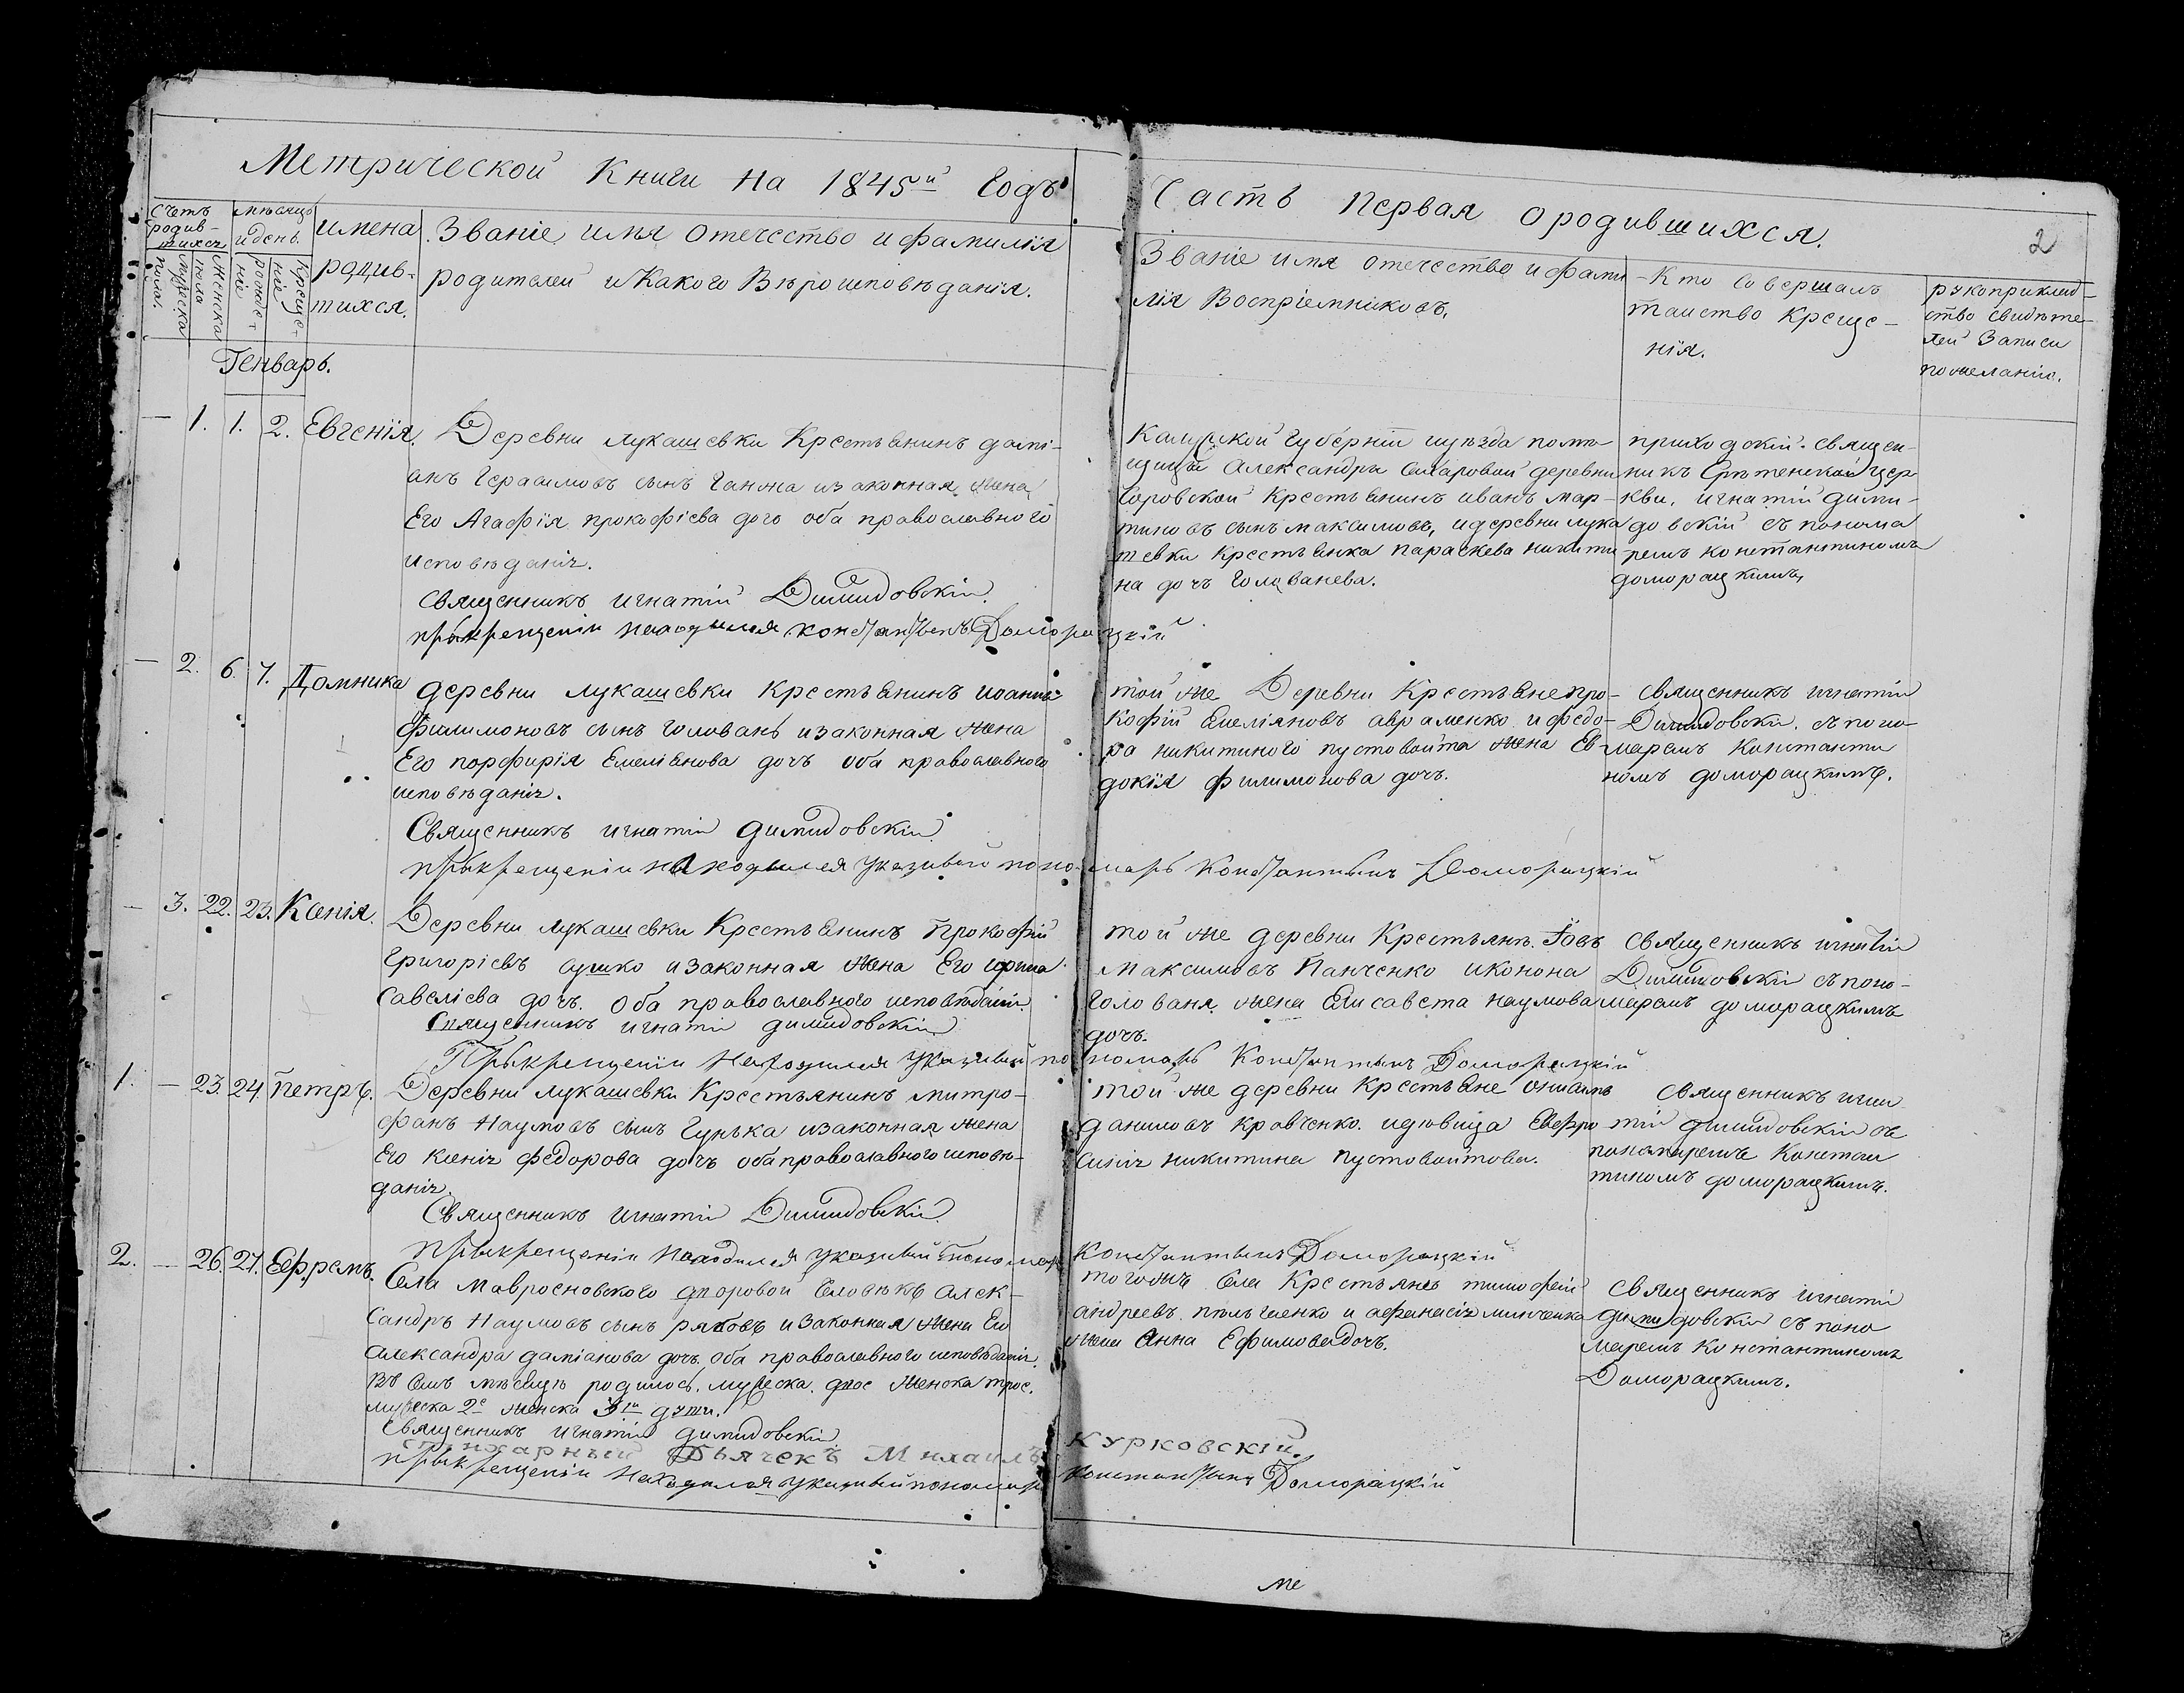 Метрической Книги на 1845й Годъ
Часть Первая ородившихся.
2
Счетъ родив-шихся
мѣсяцъ идень.
имена родив-шихся.
Званіе, имя отечество ифамилія
родителей иКакого Вѣроисповѣданія.
Званіе имя отечество ифами
лія Воспріемниковъ.
Кто Совершалъ
таинство Креще-
нія.
рукоприклад-
ство свидѣте-
лей Записи
пожеланію.
мужеска пола.
женска пола
рожде-ніе
Креще-ніе
Генварь.
— 1. 1. 2. Евгенія.
Деревни лукашевки Крестьянинъ дамі-
анъ Герасимовъ сынъ Ганжа изаконная жена
Его Агафія прокофіева дочь оба православного
исповѣданія.
Священникъ игнатій Димидовскій.
прыкрещеніи находился константынъ Доморацкій
Губерніи уѣзда помѣ-
щицы Александры деревни
Крестьянинъ иванъ мар-
тиновъ сынъ максимовъ, идеревни лука
шевки Крестьянка параскева никити
на дочь Голованева.
приходскій священ-
никъ Срѣтенской цер
кви, игнатій дими-
довскій съ понома
ремъ константиномъ
доморацкимъ,
— 2. 6. 7. Домника
деревни лукашевки Крестьянинъ иоаннъ
филимоновъ сынъ Головань изаконная жена
Его порфирія Емеліянова дочь оба православного
исповѣданія.
Священникъ игнатій димидовскій
прыкрещеніи находился указный пономарь Константынъ Доморацкій
той же Деревни Крестьяне про-
кофій Емеліяновъ авраменко ифедо-
ра никитиного пустовойта жена Ев-
докія филимонова дочь.
Священникъ игнатій
Димидовскій съ поно-
маремъ Константи
номъ доморацкимъ.
— 3. 22. 23. Ксенія.
Деревни лукашевки Крестьянинъ Прокофій
Григоріевъ сушко изаконная жена Его ирина
Савеліева дочь. Оба православного исповѣданія.
Священникъ игнатій димидовскій
Прыкрещеніи Находился Указный пономарь Константынъ Доморацкій
той же деревни Крестьяне. Іовъ
Максимовъ Панченко иконона
Голованя жена Елисавета наумова
дочь.
Священникъ игнатій
Димидовскій съ поно-
маремъ доморацкимъ
1. — 23. 24. Петръ.
Деревни лукашевки Крестьянинъ митро-
фанъ Наумовъ сынъ Гунька изаконная жена
Его ксенія федорова дочь оба православного исповѣ-
данія.
Священникъ Игнатій Димидовскій
прыкрещеніи Находился указный пономарь Константынъ Доморацкій
той же деревни Крестьяне
даниловъ кравченко. идювица Евфро
синія никитина пустовойтова.
Священникъ игна
тій димидовскій съ
пономаремъ Констан
тиномъ доморацкимъ.
2. — 26. 27. Ефремъ.
Села Мавросновского дворовой Человѣкъ Алек-
сандръ Наумовъ сынъ рябовъ изаконная жена Его
Александра даміанова дочь. оба православного исповѣданія.
Въ семъ мѣсяцѣ родилось. мужеска. двое женска трое.
мужеска 2е женска 3 душъ.
Священникъ игнатій димидовскій
стихарный Дьячекъ Михаилъ Курковскій.
прыкрещеніи Находился указный пономарь Константынъ Доморацкій
тогожъ Села Крестьяне тимофей
андреевъ и афанасія минченка
жена Анна Ефимова дочь.
Священникъ игнатій
димидовскій съ поно
маремъ Константиномъ
Доморацкимъ.
же